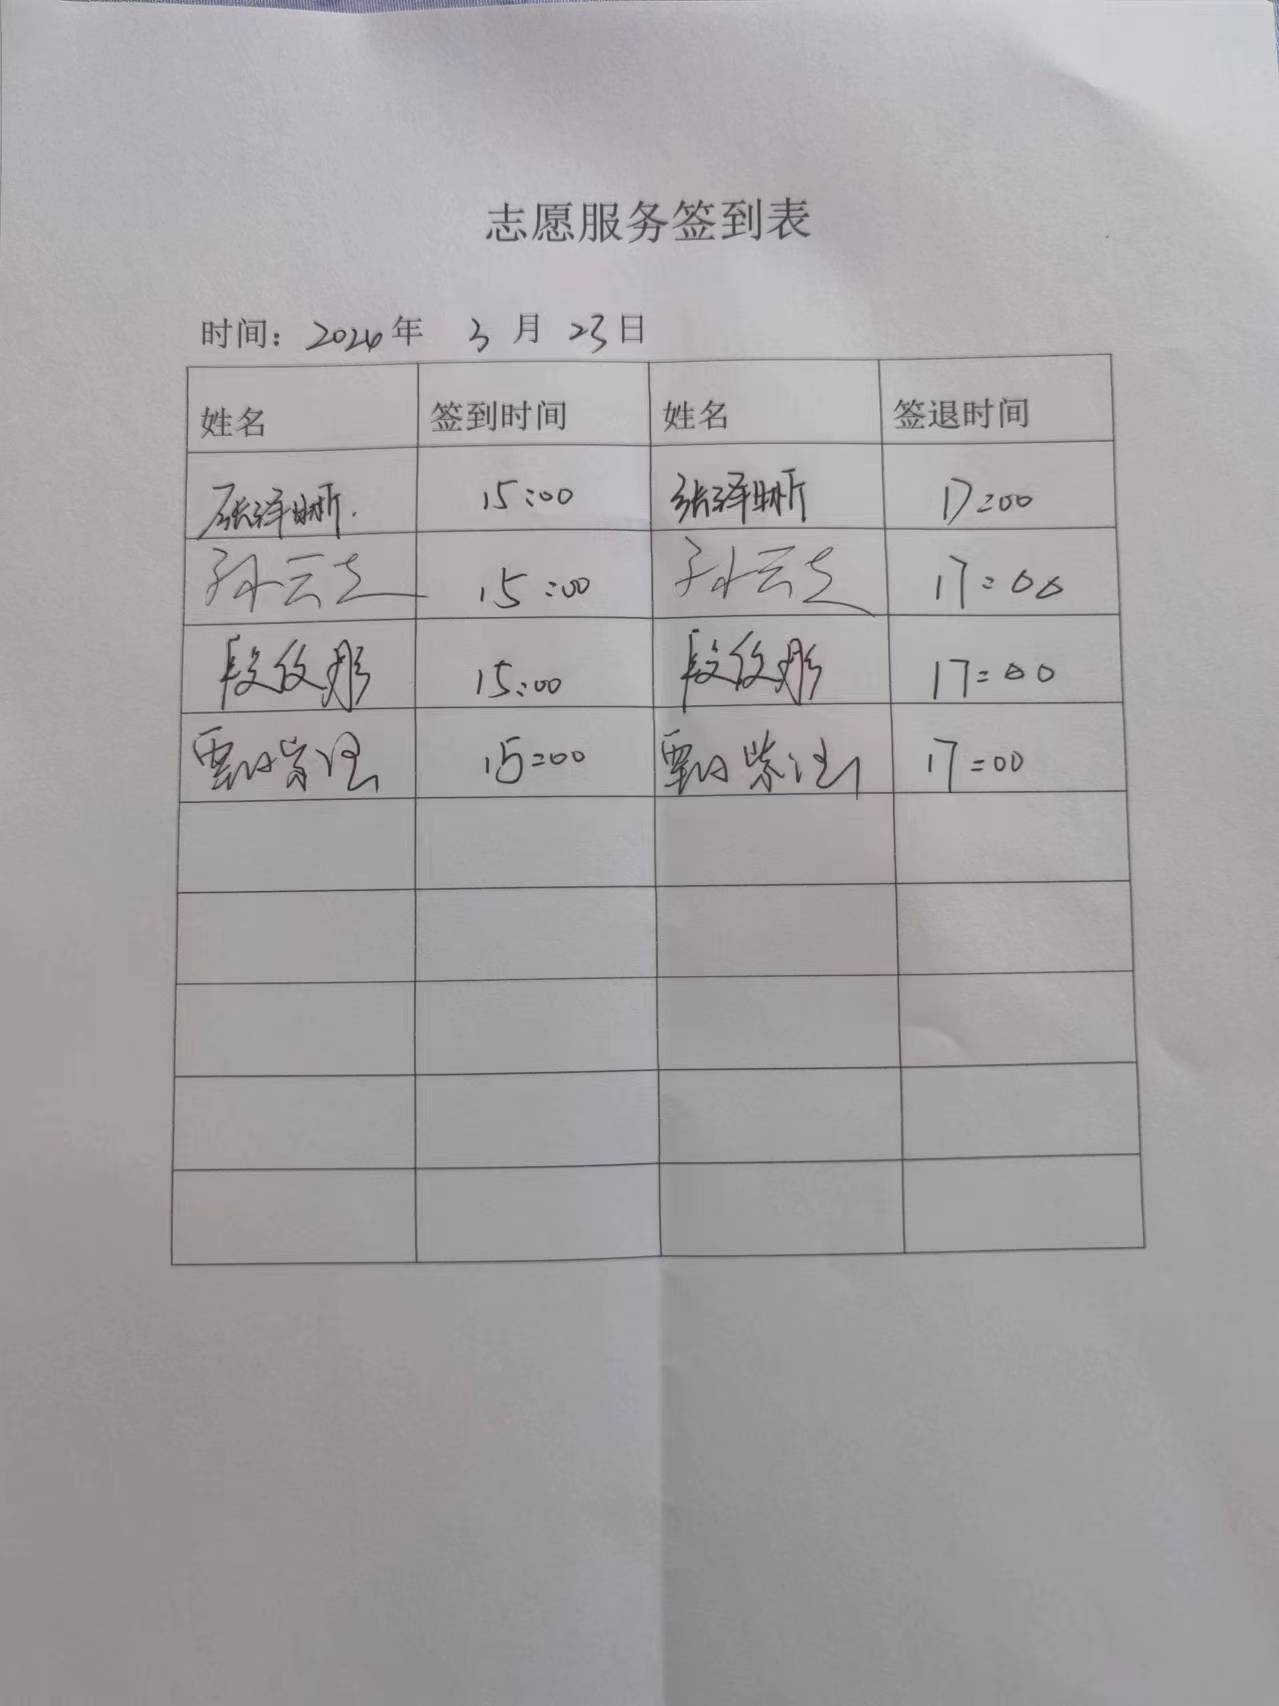 志愿服务签到表
时间: 2024年 3月 23日
姓名 签到时间 姓名 签退时间
张泽晰 15:00 张泽晰 17:00
孙云 15:00 孙云 17:00
段文彤 15:00 段文彤 17:00
紫 15:00 紫 17:00